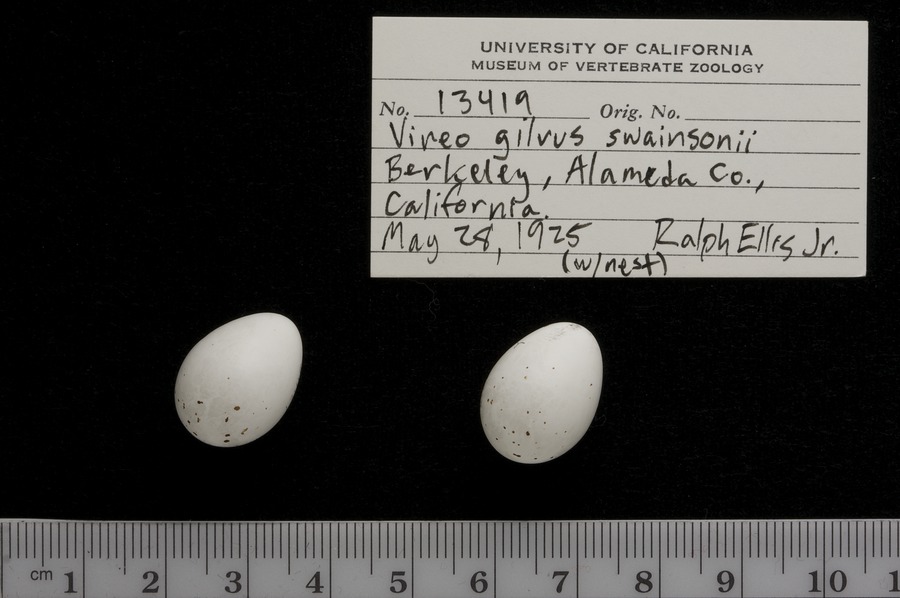 UNIVERSITY OF CALIFORNIA
MUSEUM OF VERTEBRATE ZOOLOGY
No. 13419 Orig. No.
Vireo gilvus swainsonii
Berkeley, Alameda Co.,
California.
May 28, 1925 Ralph Ellis Jr.
(w/nest)
cm 1 2 3 4 5 6 7 8 9 10 1